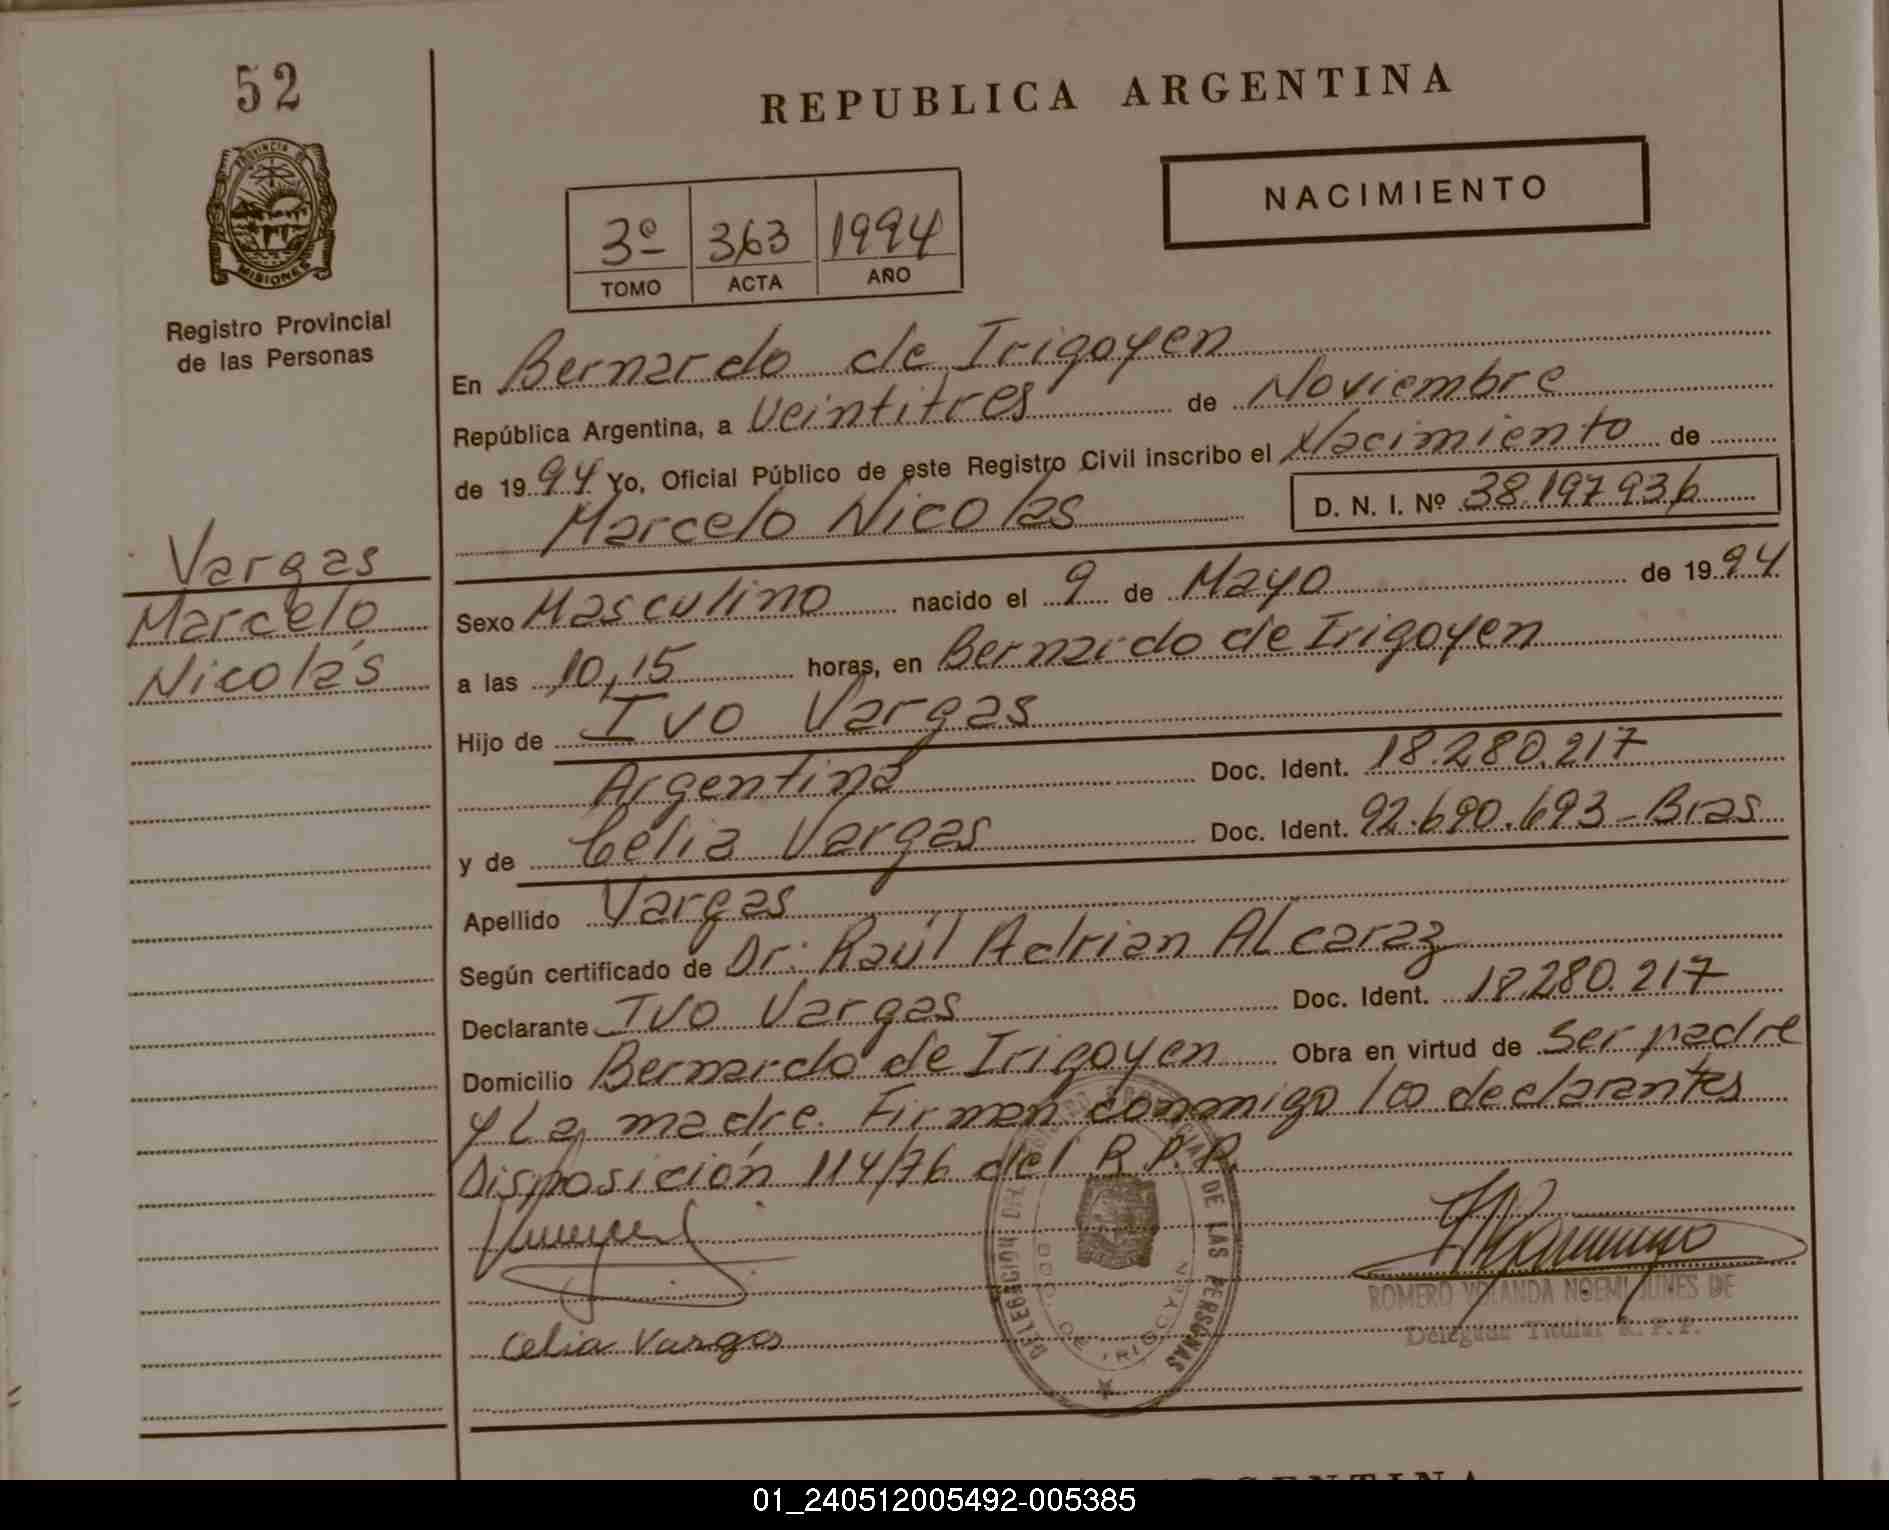 52
REPUBLICA ARGENTINA
PROVINCIA DE
MISIONES
Registro Provincial
de las Personas
NACIMIENTO
3º 363 1994
TOMO ACTA AÑO
En Bernardo de Irigoyen
República Argentina, a Veintitres de Noviembre
de 1994 Yo, Oficial Público de este Registro Civil inscribo el Nacimiento de
Marcelo Nicolas D. N. I. Nº 38.197.936
Vargas
Marcelo
Nicolás
Sexo Masculino nacido el 9 de Mayo de 1994
a las 10,15 horas, en Bernardo de Irigoyen
Hijo de Ivo Vargas
Argentina Doc. Ident. 18.280.217
y de Celia Vargas Doc. Ident. 92.690.693-Bras
Apellido Vargas
Según certificado de Dr: Raúl Adrian Alcaraz
Declarante Ivo Vargas Doc. Ident. 18.280.217
Domicilio Bernardo de Irigoyen Obra en virtud de Ser padre
y La madre. Firman conmigo los declarantes
Disposición 114/76 del R.P.P.
DELEGACION DEL REGISTRO PROVINCIAL DE LAS PERSONAS
BDO. DE IRIGOYEN
ROMERO YOLANDA NOEMI JUNES DE
Delegada Titular R. P. P.
Celia Vargas
ARGENTINA
01_240512005492-005385